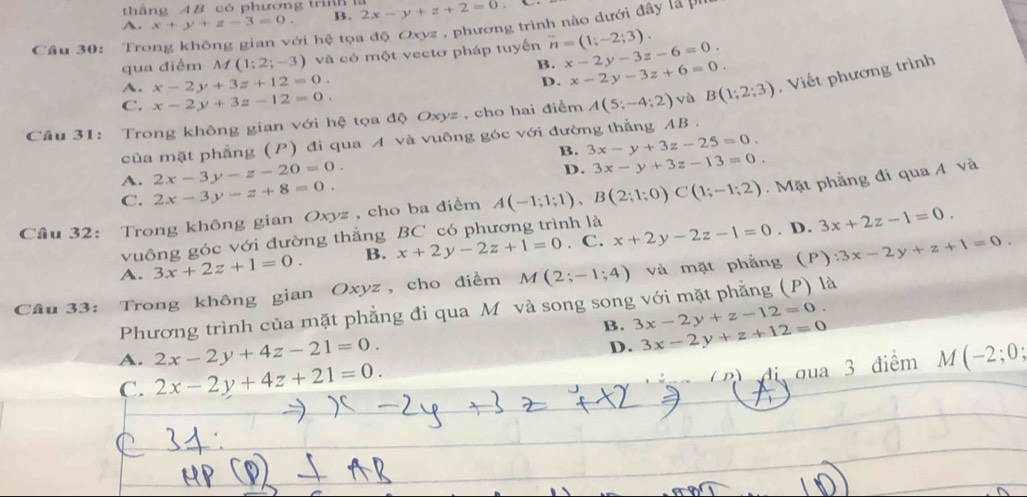 thẳng AB có phương trình là
A. x + y + z − 3 = 0. B. 2x − y + z + 2 = 0.
Câu 30: Trong không gian với hệ tọa độ Oxyz, phương trình nào dưới đây là
qua điểm M(1;2;−3) và có một vectơ pháp tuyến n = (1;−2;3).
A. x − 2y + 3z + 12 = 0. B. x − 2y − 3z − 6 = 0.
C. x − 2y + 3z − 12 = 0. D. x − 2y − 3z + 6 = 0.
Câu 31: Trong không gian với hệ tọa độ Oxyz, cho hai điểm A(5;−4;2) và B(1;2;3). Viết phương trình
của mặt phẳng (P) đi qua A và vuông góc với đường thẳng AB.
A. 2x − 3y − z − 20 = 0. B. 3x − y + 3z − 25 = 0.
C. 2x − 3y − z + 8 = 0. D. 3x − y + 3z − 13 = 0.
Câu 32: Trong không gian Oxyz, cho ba điểm A(−1;1;1), B(2;1;0) C(1;−1;2). Mặt phẳng đi qua A và
vuông góc với đường thẳng BC có phương trình là
A. 3x + 2z + 1 = 0. B. x + 2y − 2z + 1 = 0. C. x + 2y − 2z − 1 = 0. D. 3x + 2z − 1 = 0.
Câu 33: Trong không gian Oxyz, cho điểm M(2;−1;4) và mặt phẳng (P):3x − 2y + z + 1 = 0.
Phương trình của mặt phẳng đi qua M và song song với mặt phẳng (P) là
A. 2x − 2y + 4z − 21 = 0. B. 3x − 2y + z − 12 = 0.
C. 2x − 2y + 4z + 21 = 0. D. 3x − 2y + z + 12 = 0
đi qua 3 điểm M(−2;0;
⇒ x − 2y + 3z + 12 ⇒ (A)
C 31:
MP (P) ⊥ AB